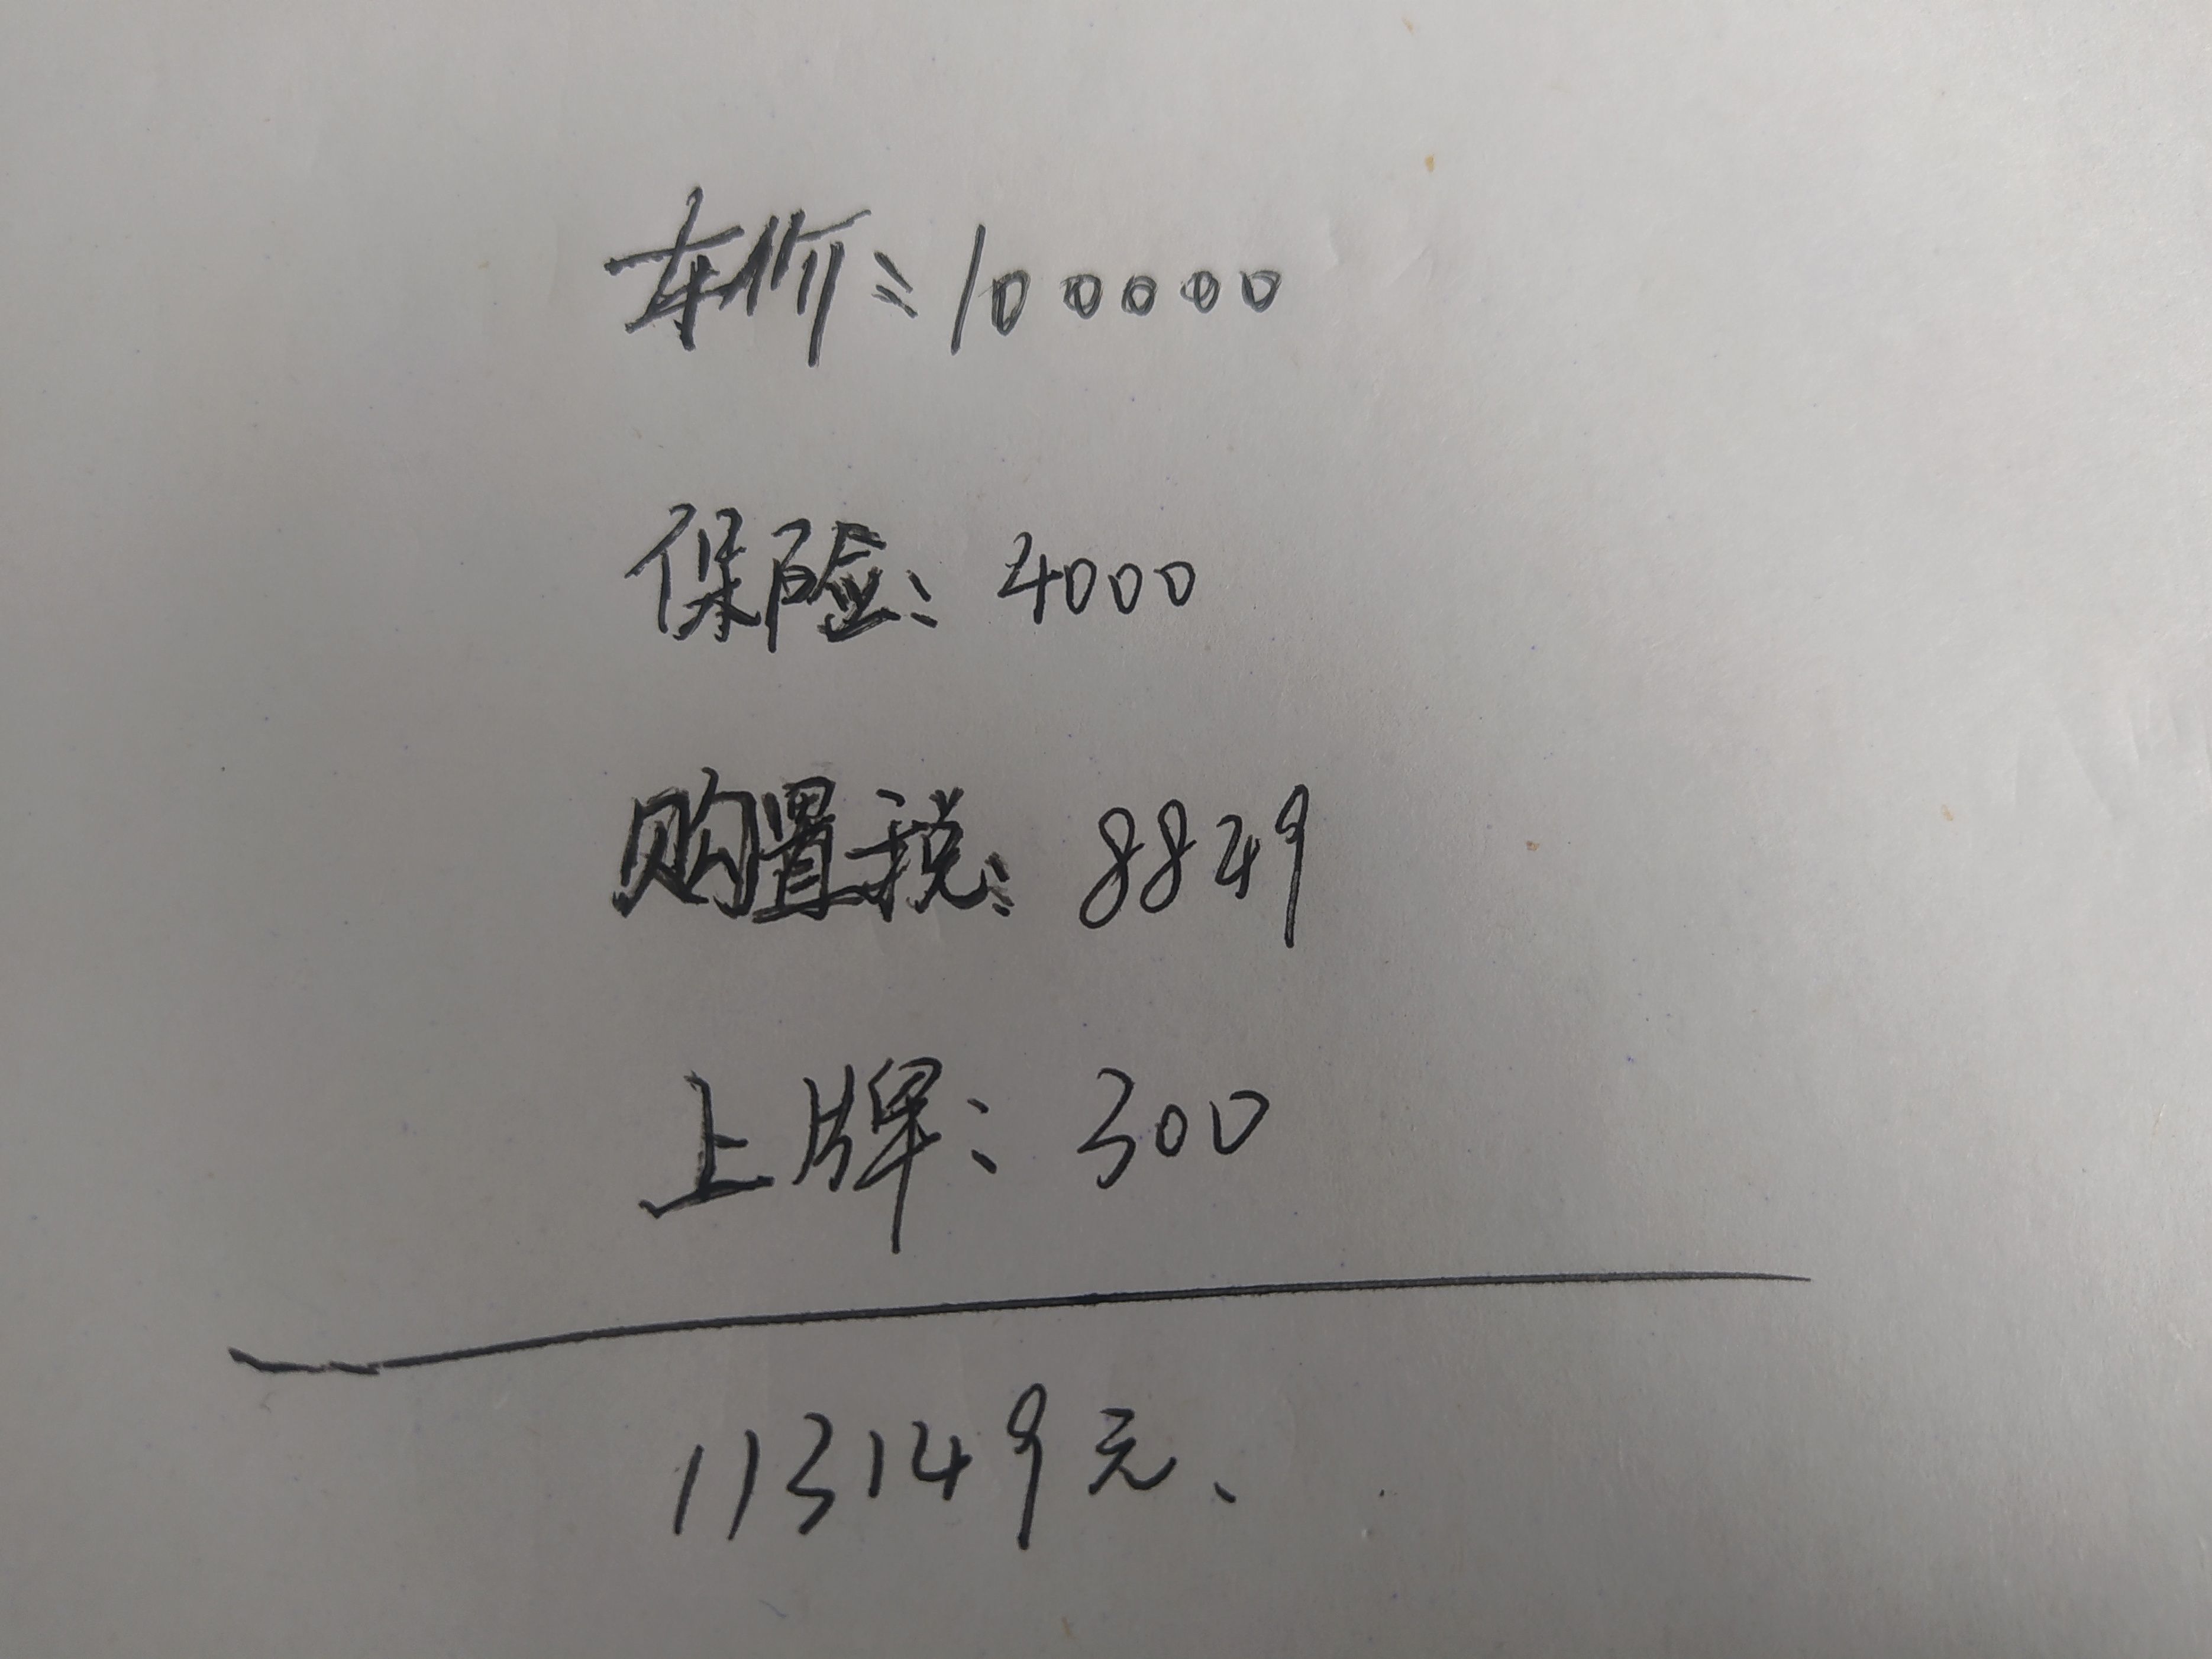 车价：100000
保险：4000
购置税：8849
上牌：300
113149元、